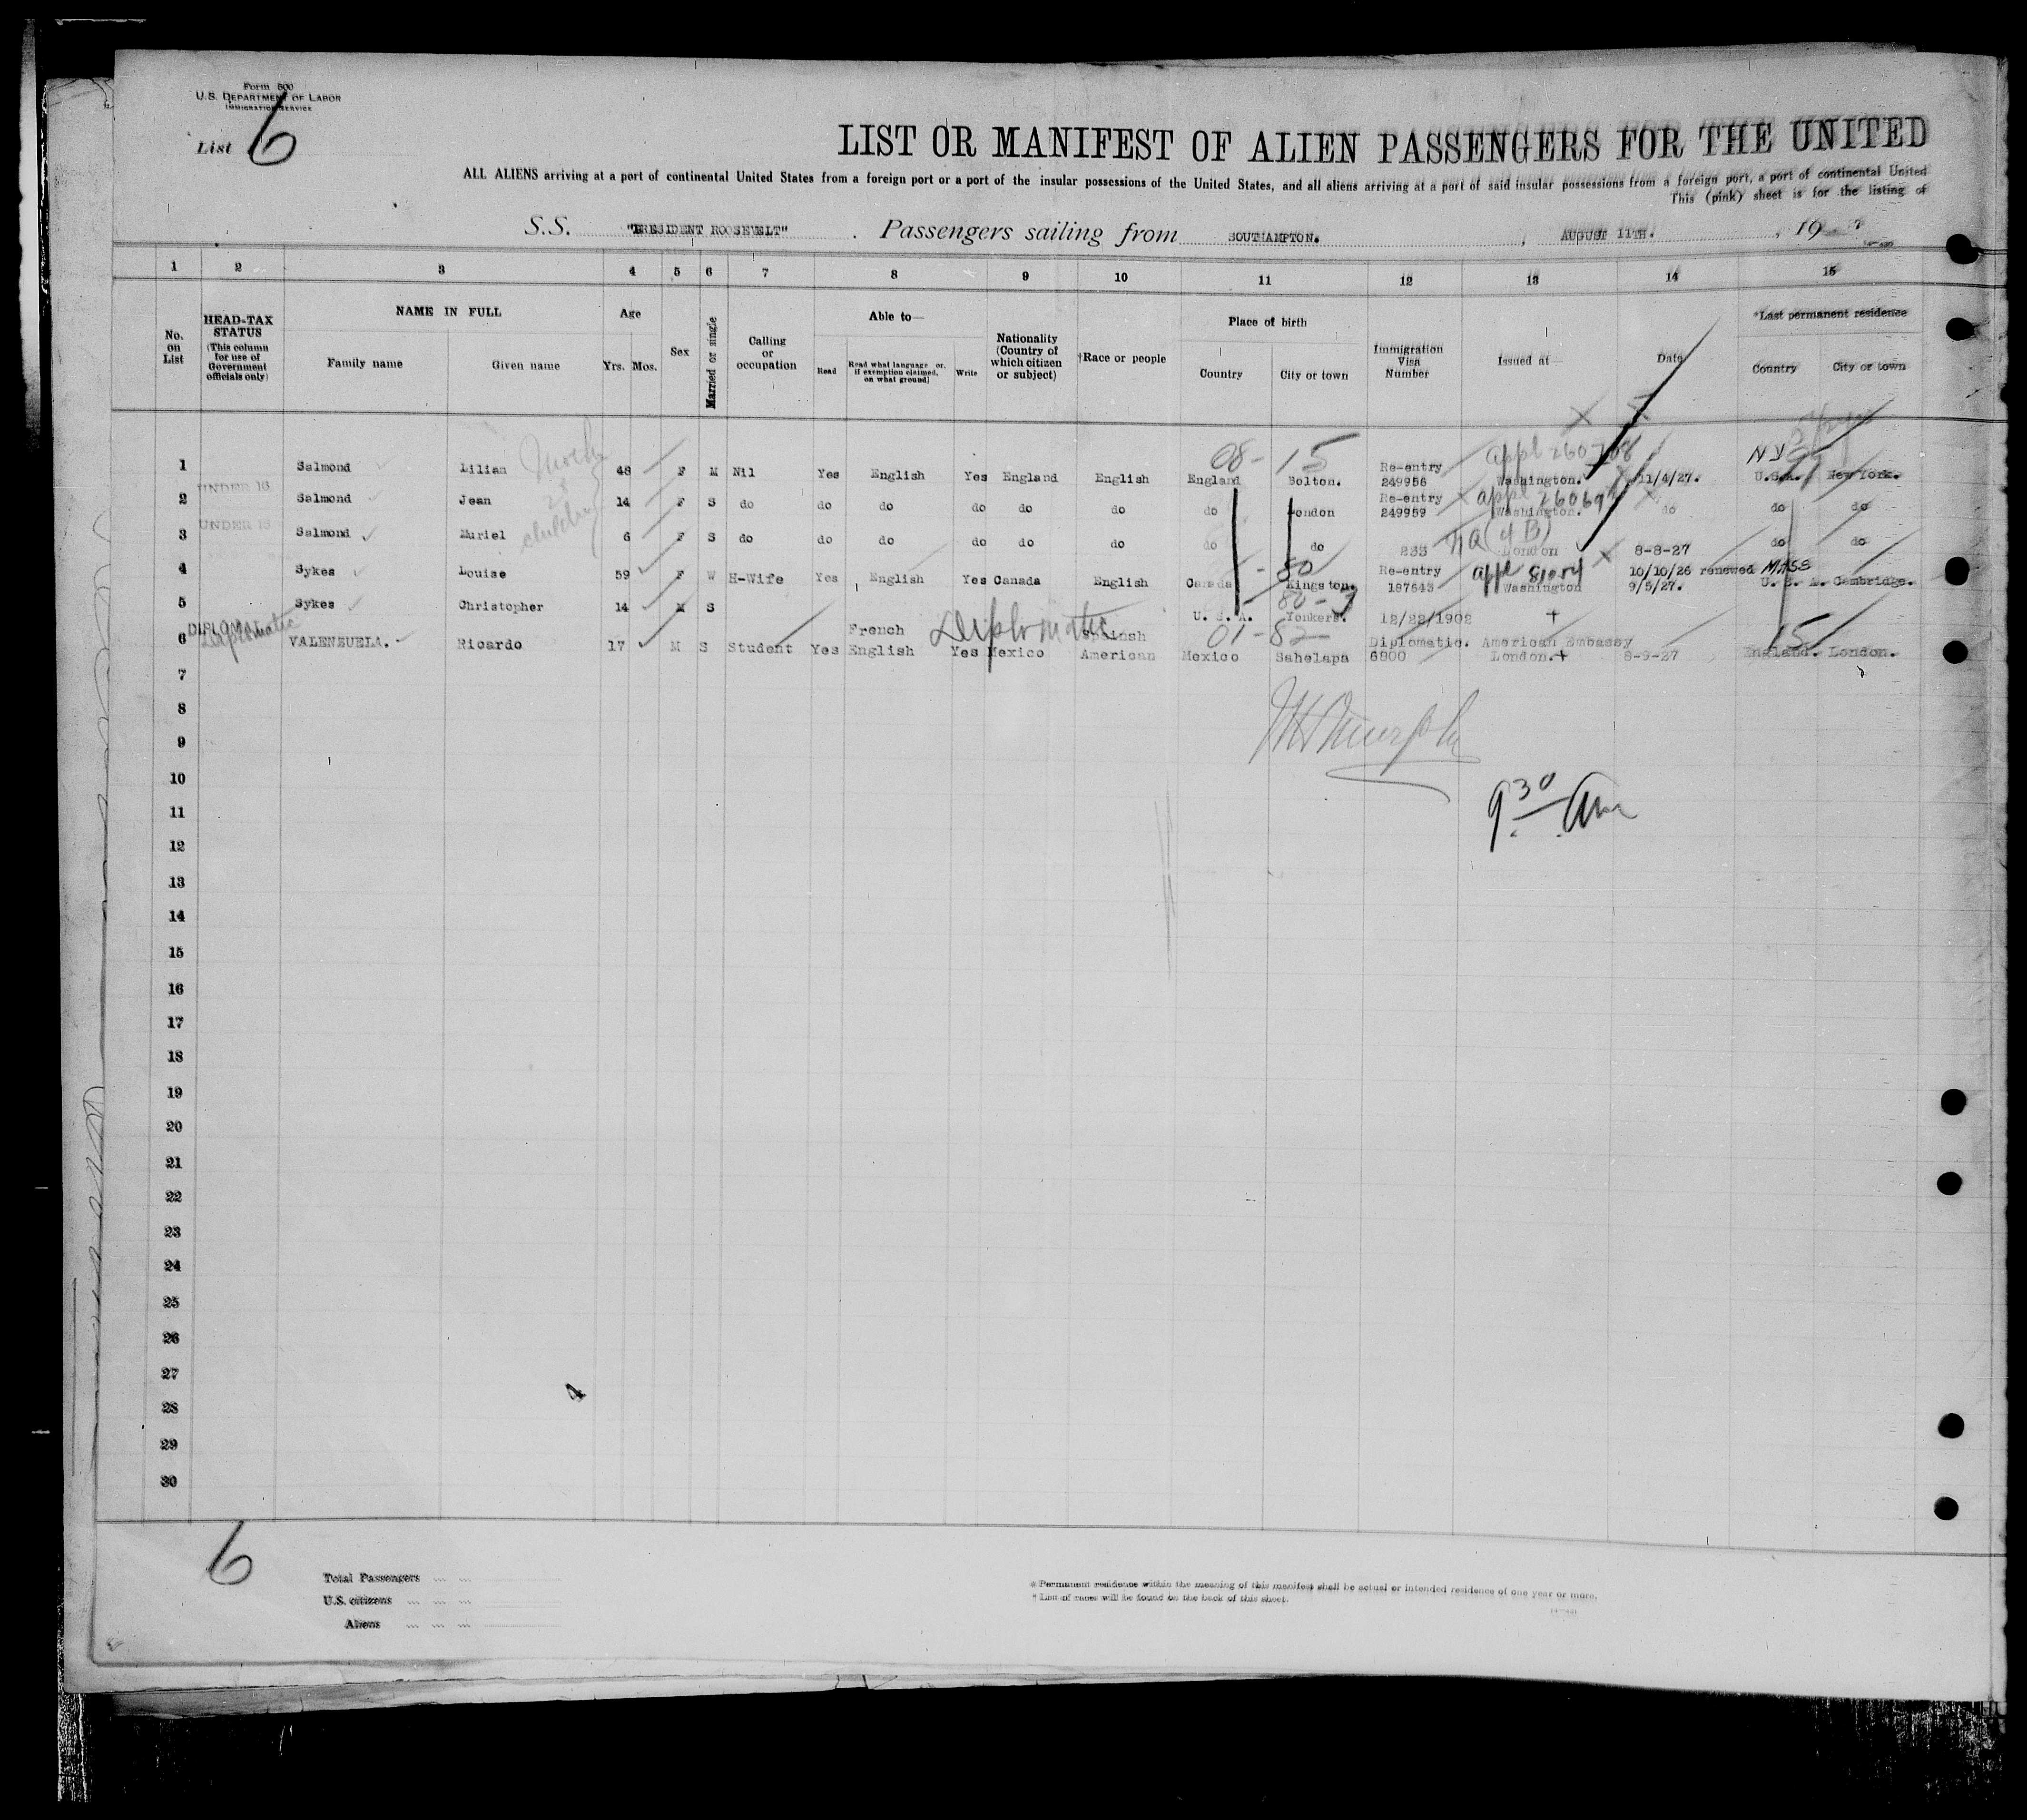 Form 500
U.S. DEPARTMENT OF LABOR
IMMIGRATION SERVICE
List 6
LIST OR MANIFEST OF ALIEN PASSENGERS FOR THE UNITED
ALL ALIENS arriving at a port of continental United States from a foreign port or a port of the insular possessions of the United States, and all aliens arriving at a port of said insular possessions from a foreign port, a port of continental United
This (pink) sheet is for the listing of
S.S. "PRESIDENT ROOSEVELT" . Passengers sailing from SOUTHAMPTON. , AUGUST 11TH. , 19 7
1 2 3 4 5 6 7 8 9 10 11 12 13 14 15
No. on List
HEAD-TAX STATUS (This column for use of Government officials only)
NAME IN FULL
Family name Given name
Age
Yrs. Mos.
Sex
Married or single
Calling or occupation
Able to—
Read Read what language or, if exemption claimed, on what ground) Write
Nationality (Country of which citizen or subject)
†Race or people
Place of birth
Country City or town
Immigration Visa Number
Issued at—
Date
*Last permanent residence
Country City or town
08- 15 appl 260768 NY
1 Salmond Lilian 48 F M Nil Yes English Yes England English England Bolton. Re-entry 249956 Washington. 11/4/27. U.S.A. New York.
UNDER 16
2 Salmond Jean 14 F S do do do do do do do London Re-entry 249959 appl Washington. do do do
UNDER 16
3 Salmond Muriel 6 F S do do do do do do do do 233 London 8-8-27 do do
children
4 Sykes Louise 59 F W H-Wife Yes English Yes Canada English Canada Kingston. Re-entry 187643 appl Washington 10/10/26 renewed 9/5/27. MASS U. S. A. Cambridge.
5 Sykes Christopher 14 M S U. S. A. Yonkers. 12/22/1902
DIPLOMAT Diplomatic Diplomatic 01-82 15
6 VALENSUELA. Ricardo 17 M S Student Yes French English Yes Mexico Spanish American Mexico Sahelapa Diplomatic. 6800 American Embassy London. 8-9-27 England. London.
7
8
9
10
9 30 Am
11
12
13
14
15
16
17
18
19
20
21
22
23
24
25
26
27
4
28
29
30
6
Total Passengers
U.S. citizens
Aliens
* Permanent residence within the meaning of this manifest shall be actual or intended residence of one year or more.
† List of races will be found on the back of this sheet.